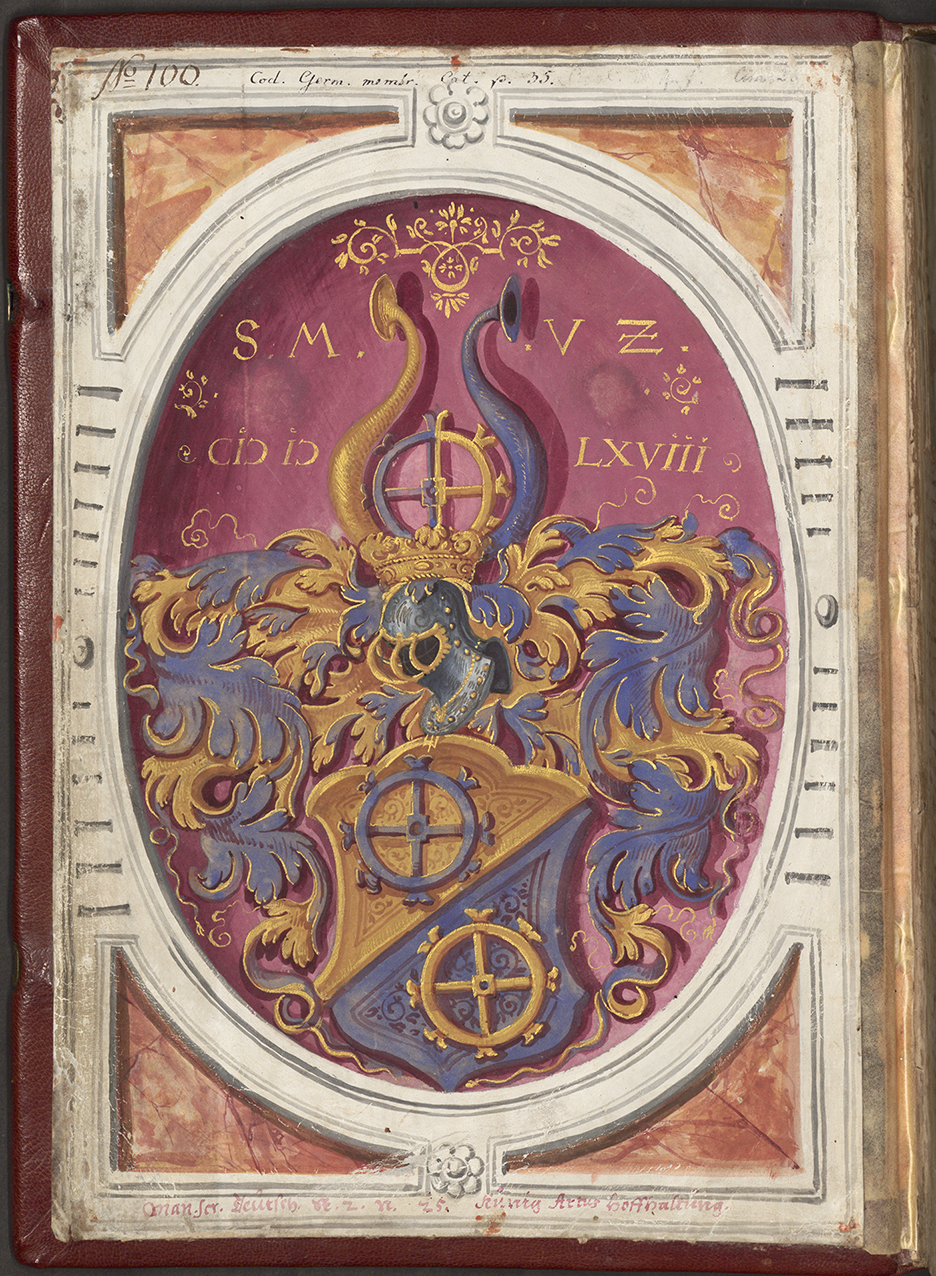 No 100. Cod. Germ. membr. Cat. p. 35.
S. M. . V Z .
CIƆ IƆ LXVIIII
Manscr. Teütsch st. 2. n. 25. Künig Artus Hoffhaltüng.